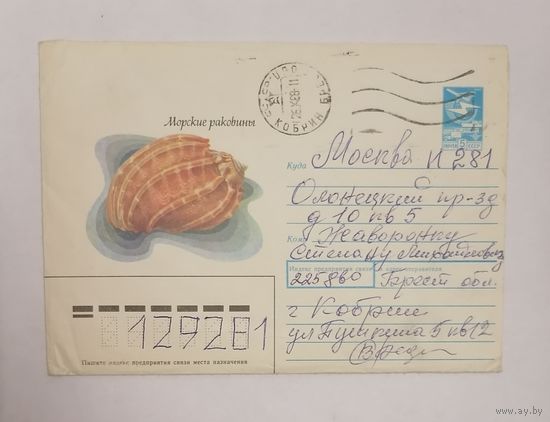 Морские раковины
КОБРИН
ПОЧТА СССР 5
Куда Москва И 281
Олонецкий пр-зд
д 10 кв 5
Кому Жаворонку
Степану
Индекс предприятия связи и адрес отправителя
225860 Брест обл.
г Кобрин
ул Пушкина 5 кв 12
129281
Пишите индекс предприятия связи места назначения
www.ay.by